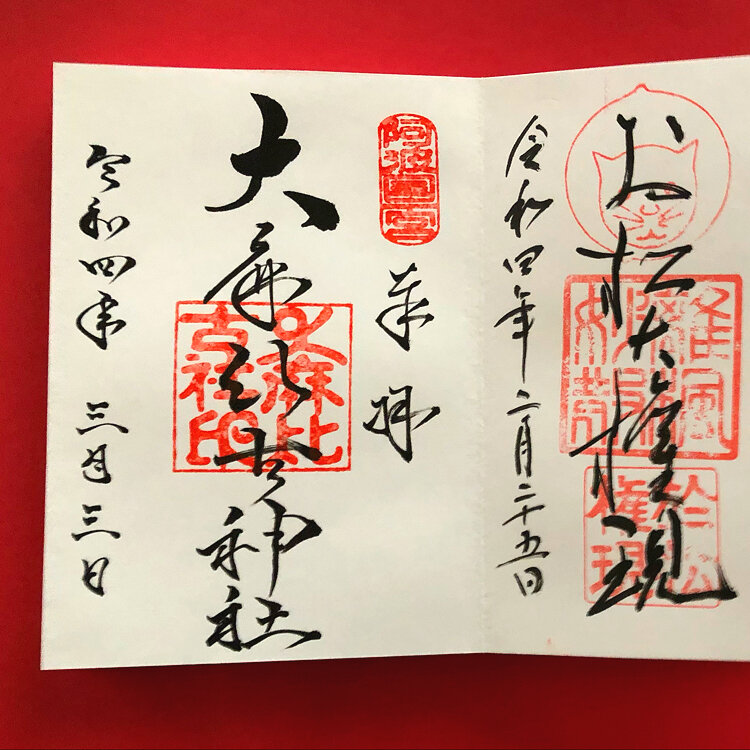 お松大権現
於松権現
令和四年二月二十五日
阿波國一宮
奉拝
大麻比古神社
大麻比古社印
令和四年三月三日